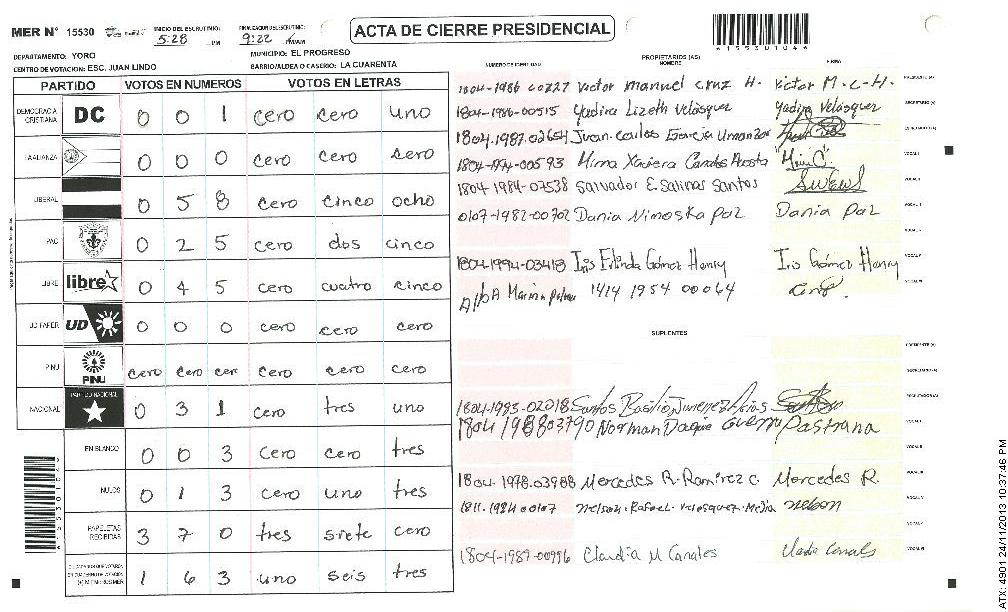 MER N° 15530 INICIO DEL ESCRUTINIO: 5:28 PM FINALIZACION DEL ESCRUTINIO: 9:22 PM/AM ACTA DE CIERRE PRESIDENCIAL
DEPARTAMENTO: YORO MUNICIPIO: EL PROGRESO
CENTRO DE VOTACION: ESC. JUAN LINDO BARRIO/ALDEA O CASERIO: LA CUARENTA
PARTIDO VOTOS EN NUMEROS VOTOS EN LETRAS
DEMOCRACIA CRISTIANA DC 0 0 1 cero cero uno
ALIANZA 0 0 0 cero cero cero
LIBERAL 0 5 8 cero cinco ocho
PAC 0 2 5 cero dos cinco
LIBRE libre 0 4 5 cero cuatro cinco
UD FAPER UD 0 0 0 cero cero cero
PINU PINU cero cero cer cero cero cero
NACIONAL PARTIDO NACIONAL 0 3 1 cero tres uno
EN BLANCO 0 0 3 cero cero tres
NULOS 0 1 3 cero uno tres
PAPELETAS RECIBIDAS 3 7 0 tres siete cero
1 6 3 uno seis tres
NUMERO DE IDENTIDAD PROPIETARIOS (AS) NOMBRE FIRMA
1804-1986 00227 Victor Manuel Cruz H. Victor M-C-H. PRESIDENTE (A)
1804-1986-00515 Yadira Lizeth Velásquez Yadira Velásquez SECRETARIO (A)
1804.1987.02654 Juan Carlos Garcia Umanzor ESCRUTADOR (A)
1804-1974-00593 Mirna Xaviera Canales Acosta VOCAL I
1804 1984-07538 Salvador E Salinas Santos VOCAL II
0107-1982-00702 Dania Nimoska Paz Dania Paz
1804-1994-03418 Iris Erlinda Gómez Henry Iris Gómez Henry
Alba Marina 1414 1954 00064
SUPLENTES
PRESIDENTE (A)
SECRETARIO (A)
1804-1983-02018 Santos Basilio Jimenez Arias ESCRUTADOR (A)
1804 198803790 Norman Daque Guerra Pastrana VOCAL I
1804.1978.03988 Mercedes R. Ramirez C. Mercedes R.
1984 00107 Nelson. Rafael. Velasquez. Mejia Nelson
1804-1987-00996 Claudia M Canales
ATX: 4901 24/11/2013 10:37:46 PM